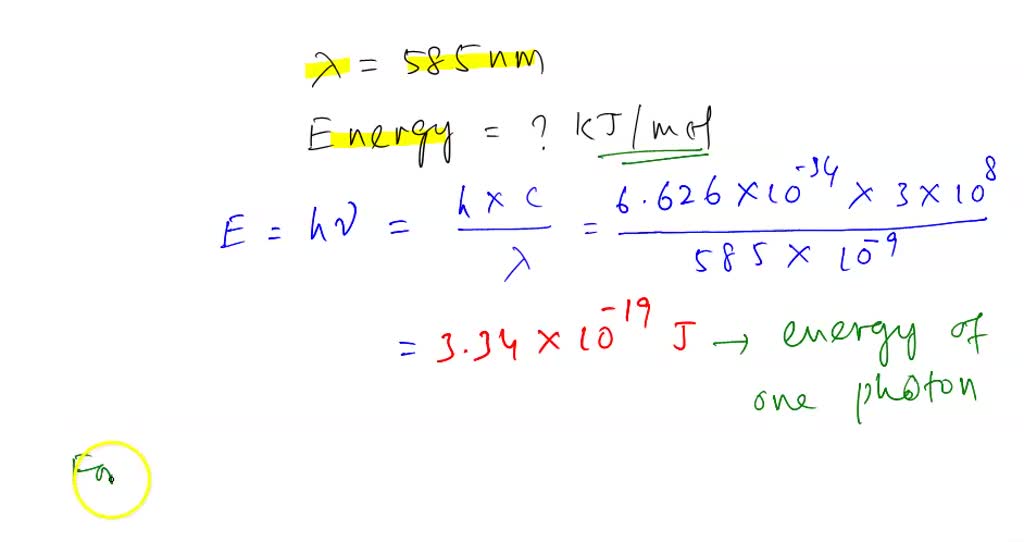 λ = 585 nm
Energy = ? KJ/mol
E = hν = h × c / λ = 6.626 × 10^-34 × 3 × 10^8 / 585 × 10^-9
= 3.34 × 10^-19 J → energy of
one photon
Fo